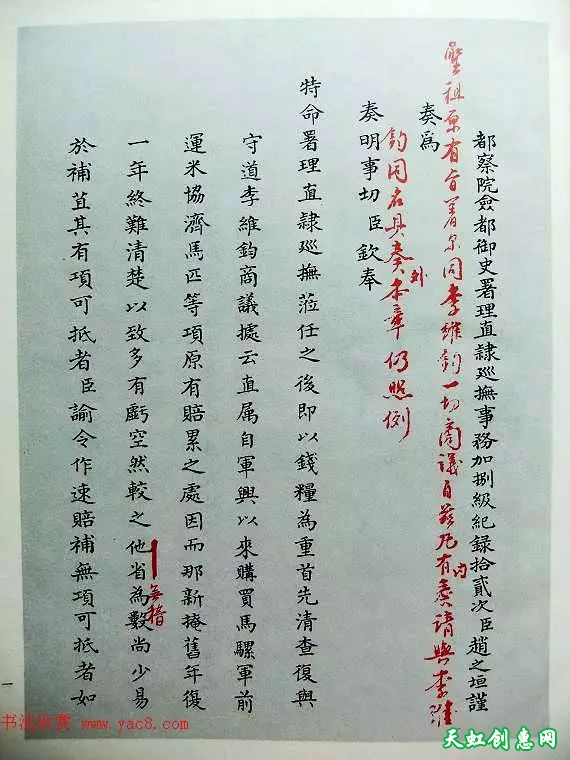 都察院僉都御史署理直隸巡撫事務加捌級紀錄拾貳次臣趙之垣謹
聖祖原有旨著尔同李維鈞一切商議自茲凡有内奏請與李維
奏爲
鈞同名具奏外本章仍照例
奏明事切臣欽奉
特命署理直隸巡撫蒞任之後即以錢糧為重首先清查復與
守道李維鈞商議據云直属自軍興以來購買馬騾軍前
運米協濟馬匹等項原有賠累之處因而那新掩舊年復
一年終難清楚以致多有虧空然較之他省為數尚少易
無稽
於補苴其有項可抵者臣諭令作速賠補無項可抵者如
一
书法欣赏 www.yac8.com
天虹创惠网